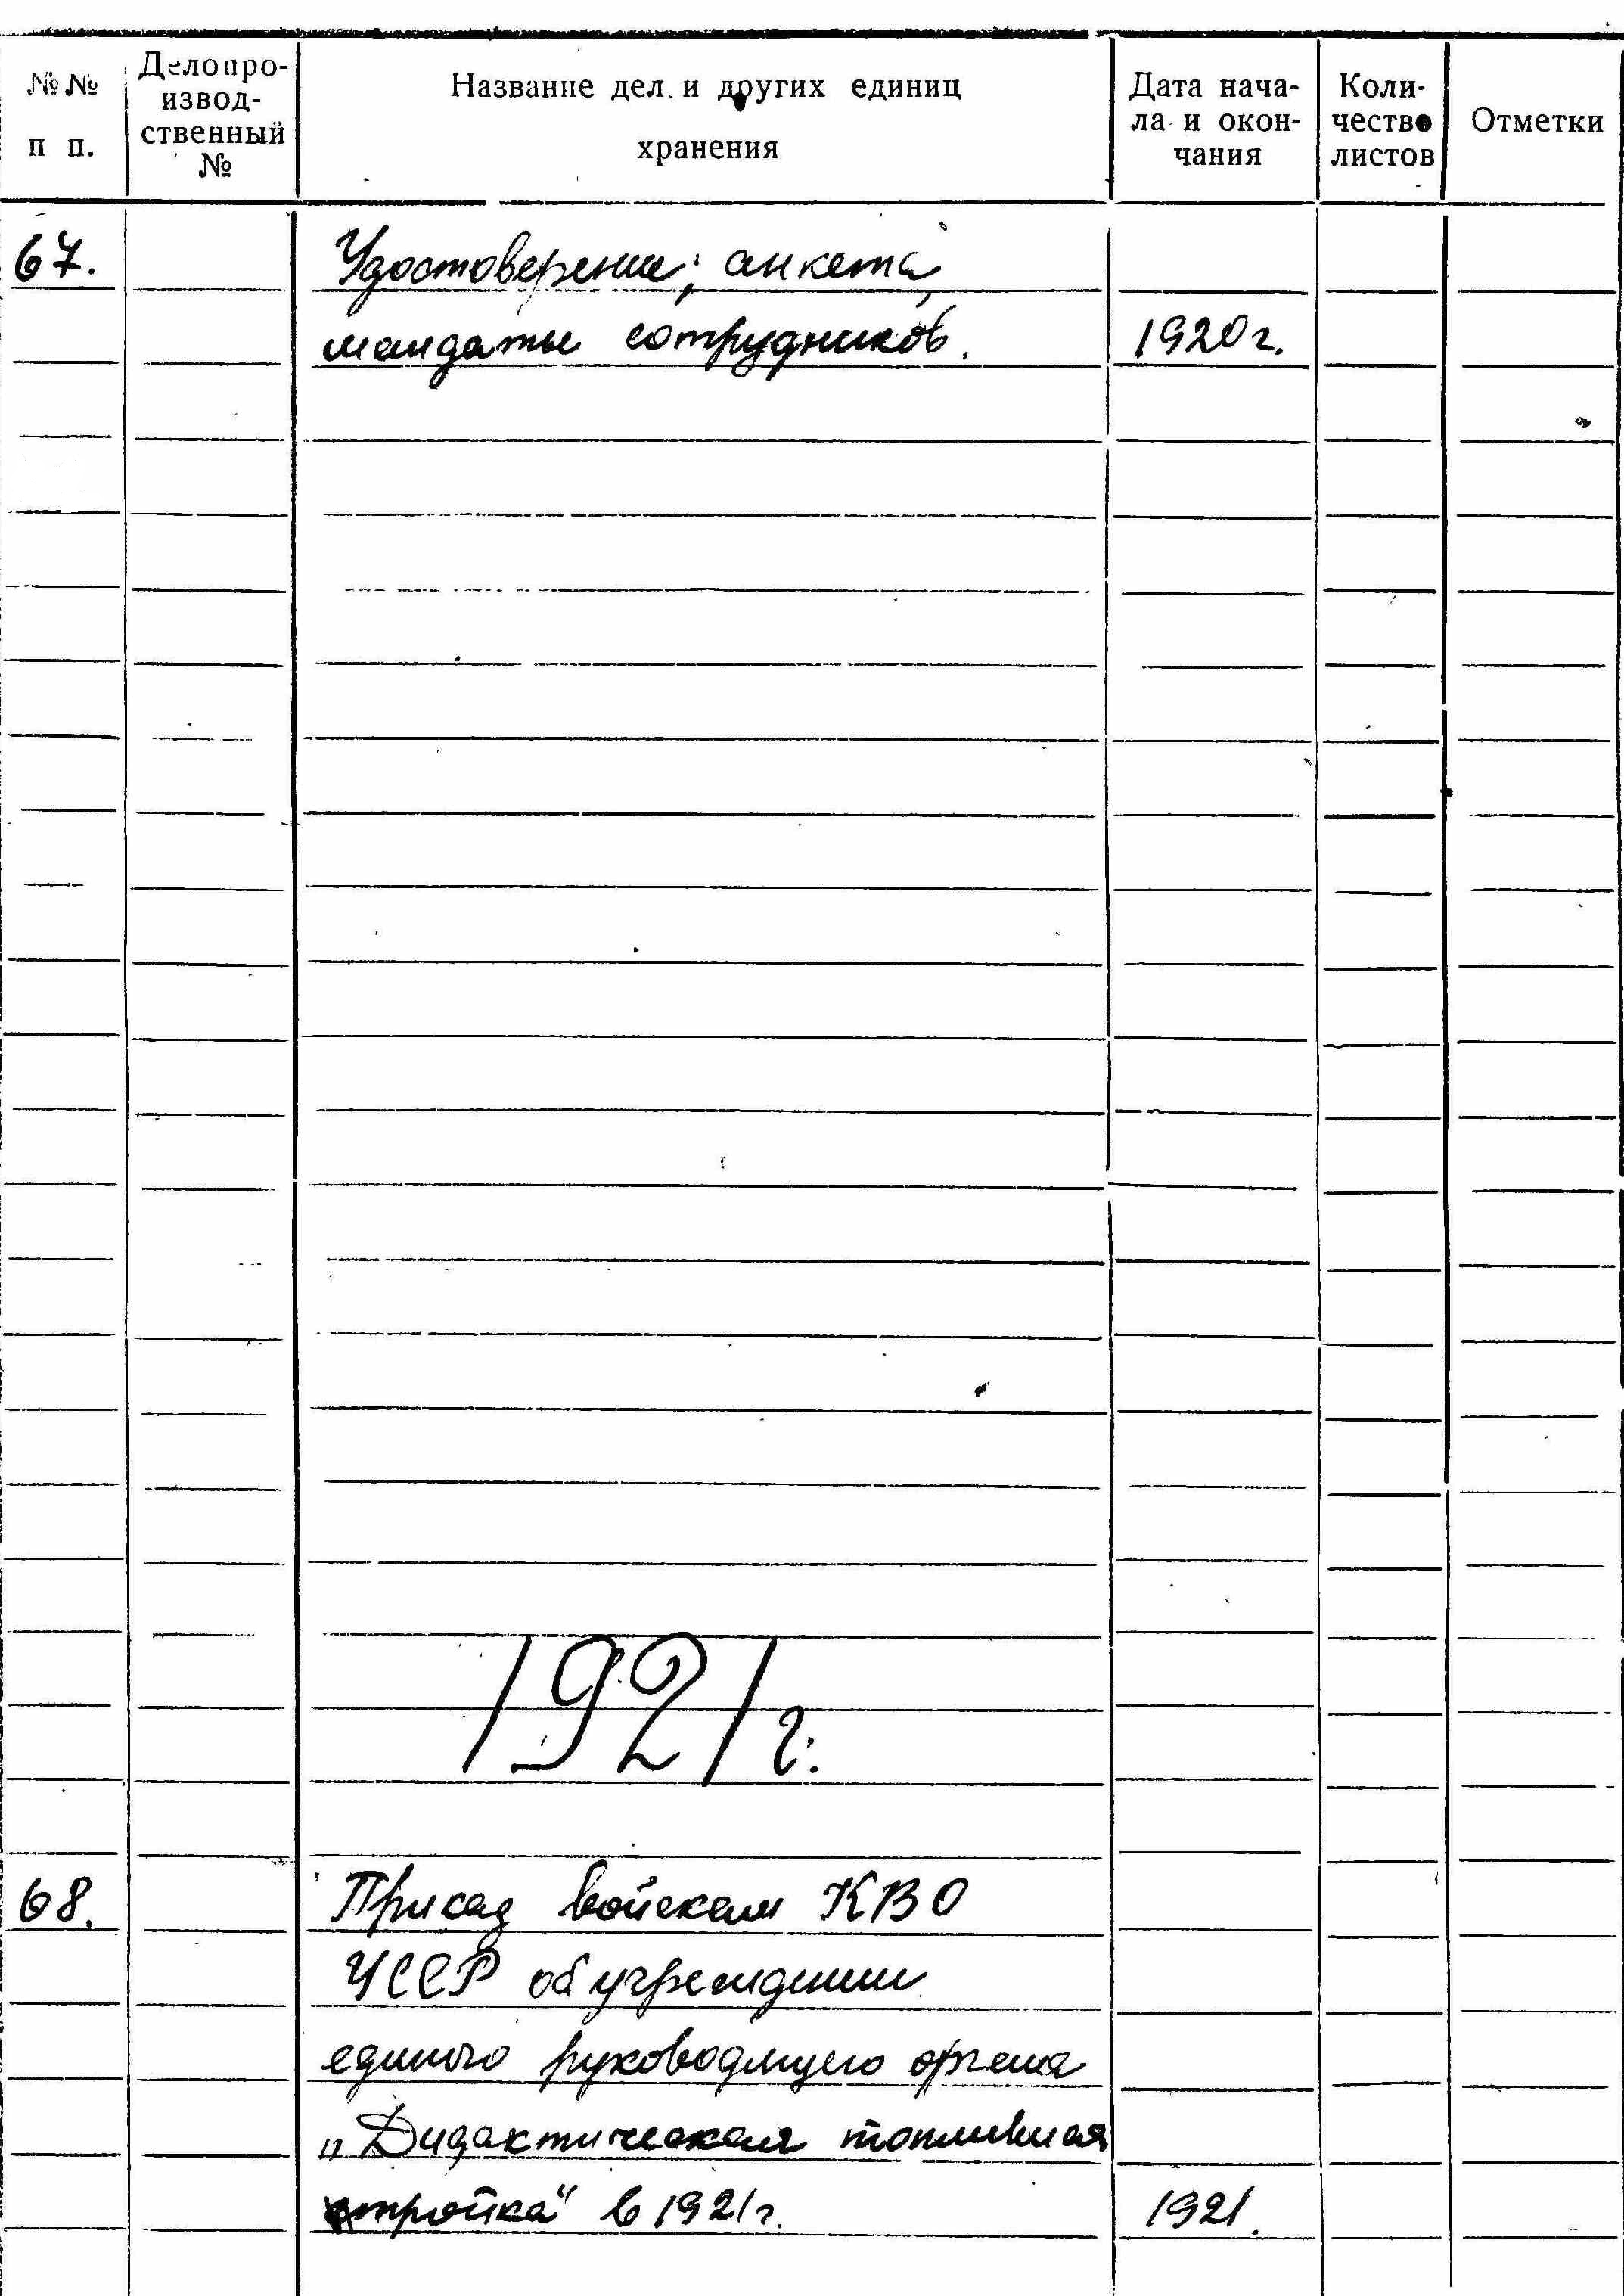 № № п п.
Делопро-
извод-
ственный
№
Название дел и других единиц
хранения
Дата нача-
ла и окон-
чания
Коли-
чество
листов
Отметки
67. Удостоверения, анкета,
мандаты сотрудников. 1920 г.
1921 г.
68. Приказ войскам КВО
УССР об учреждении
единого руководящего органа
„Дидактическая топливная
тройка" в 1921 г. 1921.